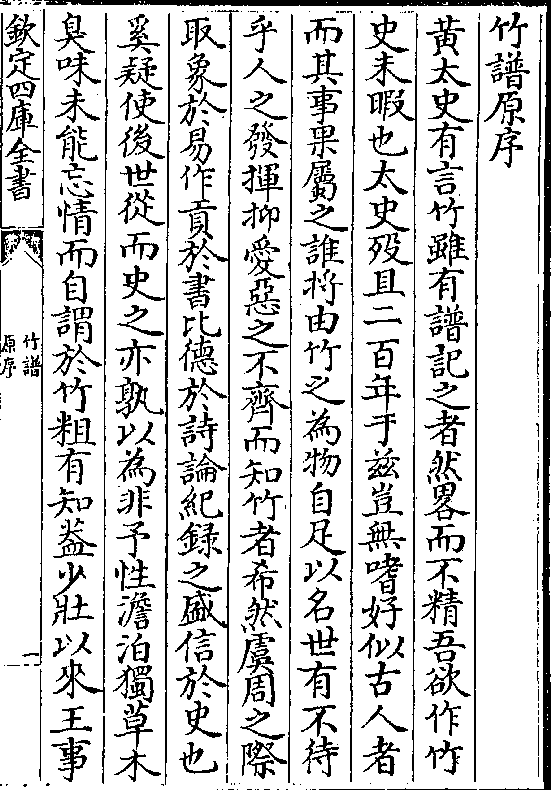 竹譜原序
黃太史有言竹雖有譜記之者然畧而不精吾欲作竹
史未暇也太史殁且二百年于兹豈無嗜好似古人者
而其事果屬之誰將由竹之為物自足以名世有不待
乎人之發揮抑愛惡之不齊而知竹者希然虞周之際
取象於易作貢於書比德於詩論紀録之盛信於史也
奚疑使後世從而史之亦孰以為非予性澹泊獨草木
臭味未能忘情而自謂於竹粗有知葢少壯以來王事
欽定四庫全書
竹譜
原序
一